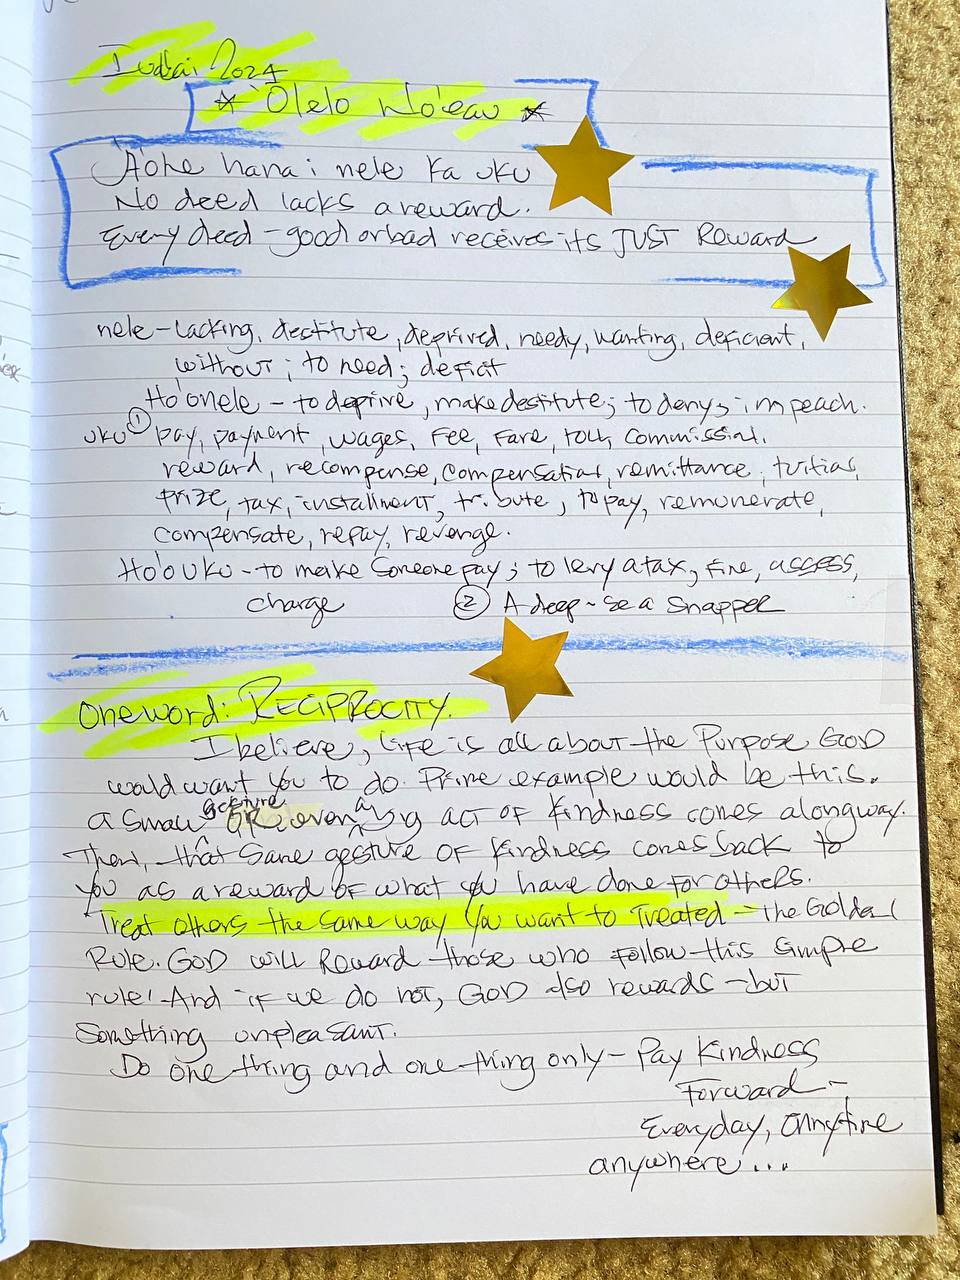 Iulai 2024
☆ 'Ōlelo No'eau ☆
A'ohe hana i nele ka uku
No deed lacks a reward.
Every deed - good or bad receives its JUST Reward
nele - Lacking, destitute, deprived, needy, wanting, deficient,
without; to need; deficit
Ho'onele - to deprive, make destitute; to deny; impeach.
uku ① pay, payment, wages, Fee, Fare, toll, commission,
reward, recompense, compensation, remittance; tuition,
prize, tax, installment, tribute; to pay, remunerate,
compensate, repay, revenge.
Ho'ouku - to make someone pay; to levy a tax, fine, assess,
charge ② A deep-sea snapper
One word: RECIPROCITY.
I believe, life is all about the Purpose GOD
would want you to do. Prime example would be this.
a small gesture OR even a big act of kindness comes along way.
Then, that same gesture of kindness comes back to
you as a reward of what you have done for others.
Treat others the same way you want to Treated - The Golden
Rule. GOD will Reward those who follow this simple
rule! And if we do not, GOD also rewards - but
something unpleasant.
Do one thing and one thing only - Pay Kindness
Forward -
Everyday, Anytime
anywhere...